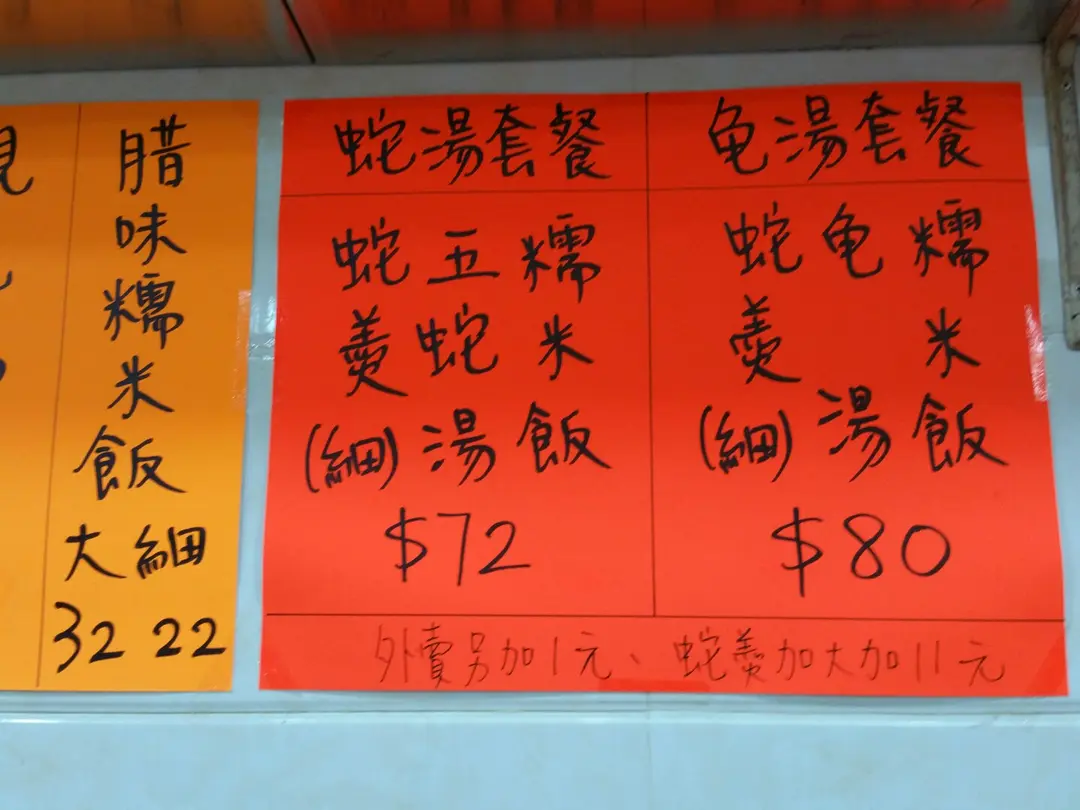 腊味糯米飯
大 細
32 22
蛇湯套餐
蛇羹(細)
五蛇湯
糯米飯
$72
龟湯套餐
蛇羹(細)
龟湯
糯米飯
$80
外賣另加1元、蛇羹加大加11元